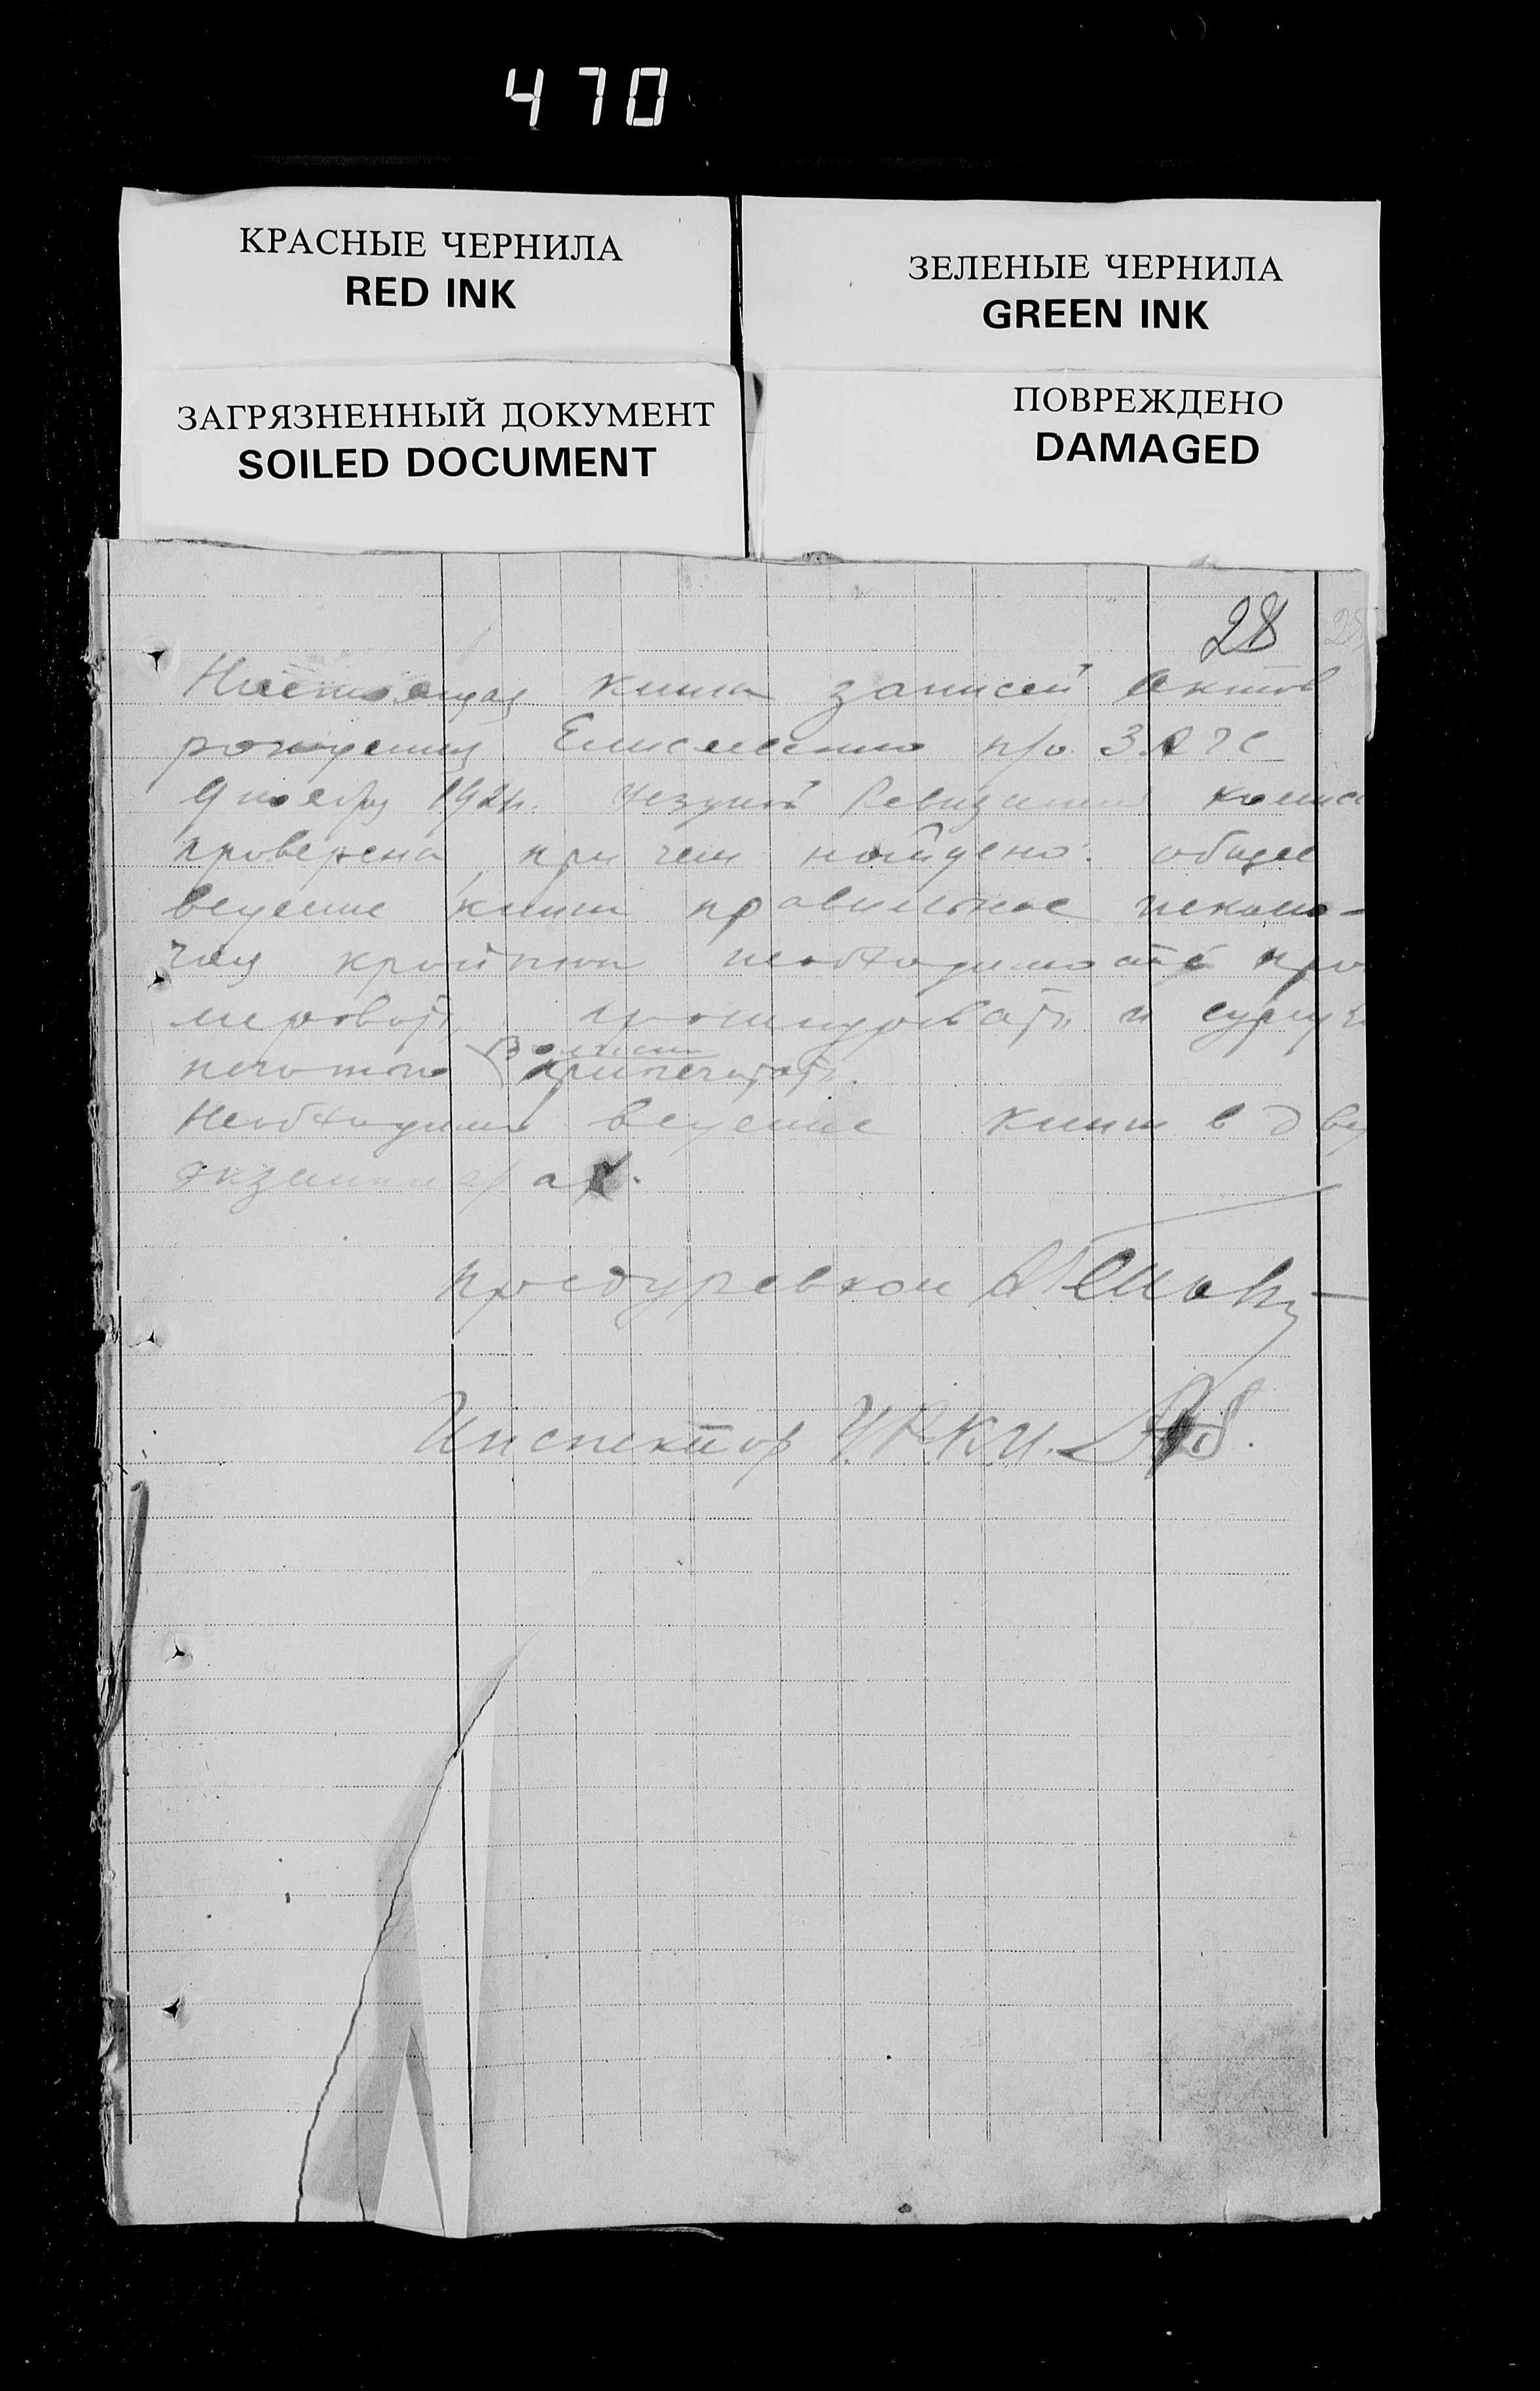 470
КРАСНЫЕ ЧЕРНИЛА
RED INK
ЗЕЛЕНЫЕ ЧЕРНИЛА
GREEN INK
ЗАГРЯЗНЕННЫЙ ДОКУМЕНТ
SOILED DOCUMENT
ПОВРЕЖДЕНО
DAMAGED
28
Настоящая книга записей актов
рождения п/о ЗАГС
9 ноября 1924. Уездной Ревизион
проверена, при чем найдено: общее
ведение книги правильное
крайняя необходимость про
меровать, прошнуровать и сургуч
печатью Волисп припечатать.
Необходимо ведение книги в дву
экземплярах.
Предуревком
Инспектор У.Р.К.И.